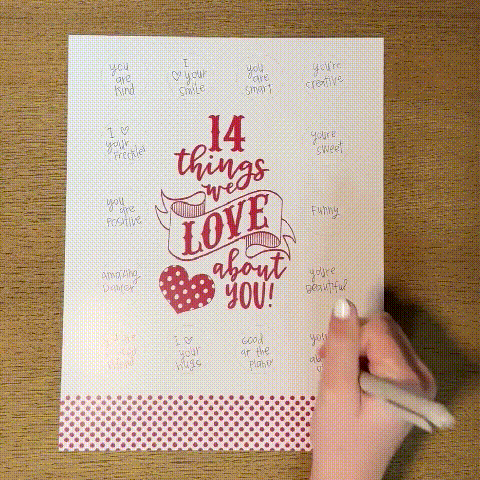 you
are
kind
I
♡ your
smile
you
are
smart
you're
creative
I ♡
your
freckles
14
things
we
LOVE
about
YOU!
you're
sweet
you
are
positive
Funny
amazing
Dancer
you're
beautiful
I ♡
your
hugs
Good
at the
piano